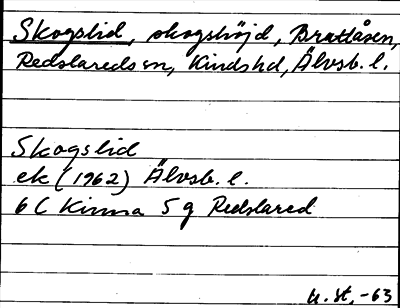 Skogslid, skogshöjd, Brattåsen,
Redslareds sn, Kinds hd, Älvsb. l.
Skogslid
ek (1962) Älvsb. l.
6 C Kinna 5 g Redslared
u. st. -63